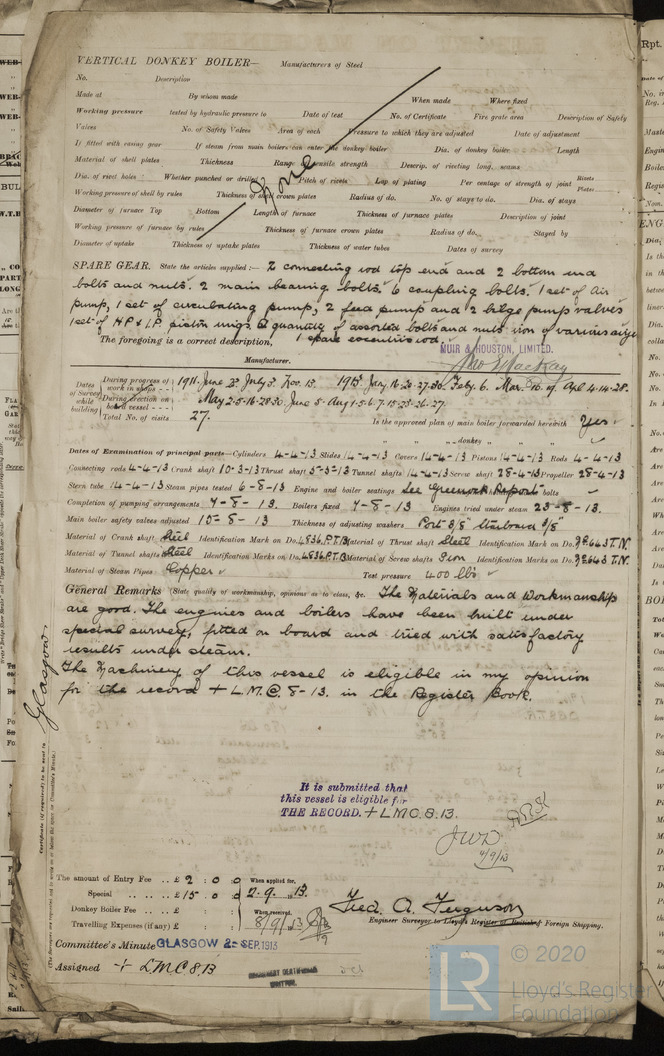 VERTICAL DONKEY BOILER— Manufacturers of Steel
No. Description
Made at By whom made When made Where fixed
Working pressure tested by hydraulic pressure to Date of test No. of Certificate Fire grate area Description of Safety
Valves No. of Safety Valves Area of each Pressure to which they are adjusted Date of adjustment
If fitted with easing gear If steam from main boilers can enter the donkey boiler Dia. of donkey boiler Length
Material of shell plates Thickness Range of tensile strength Descrip. of riveting long. seams
Dia. of rivet holes Whether punched or drilled Pitch of rivets Lap of plating Per centage of strength of joint Rivets Plates
Working pressure of shell by rules Thickness of shell crown plates Radius of do. No. of stays to do. Dia. of stays
Diameter of furnace Top Bottom Length of furnace Thickness of furnace plates Description of joint
Working pressure of furnace by rules Thickness of furnace crown plates Radius of do. Stayed by
Diameter of uptake Thickness of uptake plates Thickness of water tubes Dates of survey
None
SPARE GEAR. State the articles supplied:— 2 connecting rod top end and 2 bottom end
bolts and nuts. 2 main bearing bolts. 6 coupling bolts. 1 set of Air
pump, 1 set of circulating pump, 2 feed pump and 2 bilge pump valves
1 set of HP & LP piston rings. A quantity of assorted bolts and nuts iron of various sizes
The foregoing is a correct description, 1 spare eccentric rod.
MUIR & HOUSTON, LIMITED.
Manufacturer.
Dates of Survey while building
During progress of work in shops - - 1911. June July 3. Nov. 13 1913. Jany. 16. 24. 27. 30. Feby. 6. Mar. 10. 19. Apl. 4. 14. 28.
During erection on board vessel - - - May 2. 5. 16. 28. 30. June 5. Aug. 1. 5. 6. 7. 15. 23. 26. 27.
Total No. of visits 27.
In the approved plan of main boiler forwarded herewith Yes.
" " " donkey " "
Dates of Examination of principal parts—Cylinders 4-4-13 Slides 14-4-13 Covers 14-4-13 Pistons 14-4-13 Rods 4-4-13
Connecting rods 4-4-13 Crank shaft 10-3-13 Thrust shaft 5-5-13 Tunnel shafts 14-4-13 Screw shaft 28-4-13 Propeller 28-4-13
Stern tube 14-4-13 Steam pipes tested 6-8-13 Engine and boiler seatings See Greenock Report bolts
Completion of pumping arrangements 7-8-13. Boilers fixed 7-8-13 Engines tried under steam 23-8-13.
Main boiler safety valves adjusted 15-8-13 Thickness of adjusting washers Port 3/8" Starboard 3/8"
Material of Crank shaft Steel Identification Mark on Do. 4836 P.T.B Material of Thrust shaft Steel Identification Mark on Do. 643 T.N.
Material of Tunnel shafts Steel Identification Marks on Do. 4836 P.T.B Material of Screw shafts Iron Identification Marks on Do. 643 T.N.
Material of Steam Pipes Copper Test pressure 400 lbs
General Remarks (State quality of workmanship, opinions as to class, &c. The Materials and Workmanship
are good. The engines and boilers have been built under
special survey, fitted on board and tried with satisfactory
results under steam.
The Machinery of this vessel is eligible in my opinion
for the record + L.M.C. 8-13. in the Register Book.
Glasgow
Certificate (if required) to be sent to
It is submitted that
this vessel is eligible for
THE RECORD. + LMC 8.13.
J.W.D.
9/9/13
The amount of Entry Fee .. £ 2 : 0 : 0 When applied for,
Special .. .. £ 15 : 0 : 0 2.9.13.
Donkey Boiler Fee .. .. £ : : When received,
Travelling Expenses (if any) £ : : 8/9/13
Fred A. Ferguson
Engineer Surveyor to Lloyd's Register of British & Foreign Shipping.
Committee's Minute GLASGOW 2- SEP. 1913
Assigned + LMC 8.13
LR © 2020
Lloyd's Register
Foundation